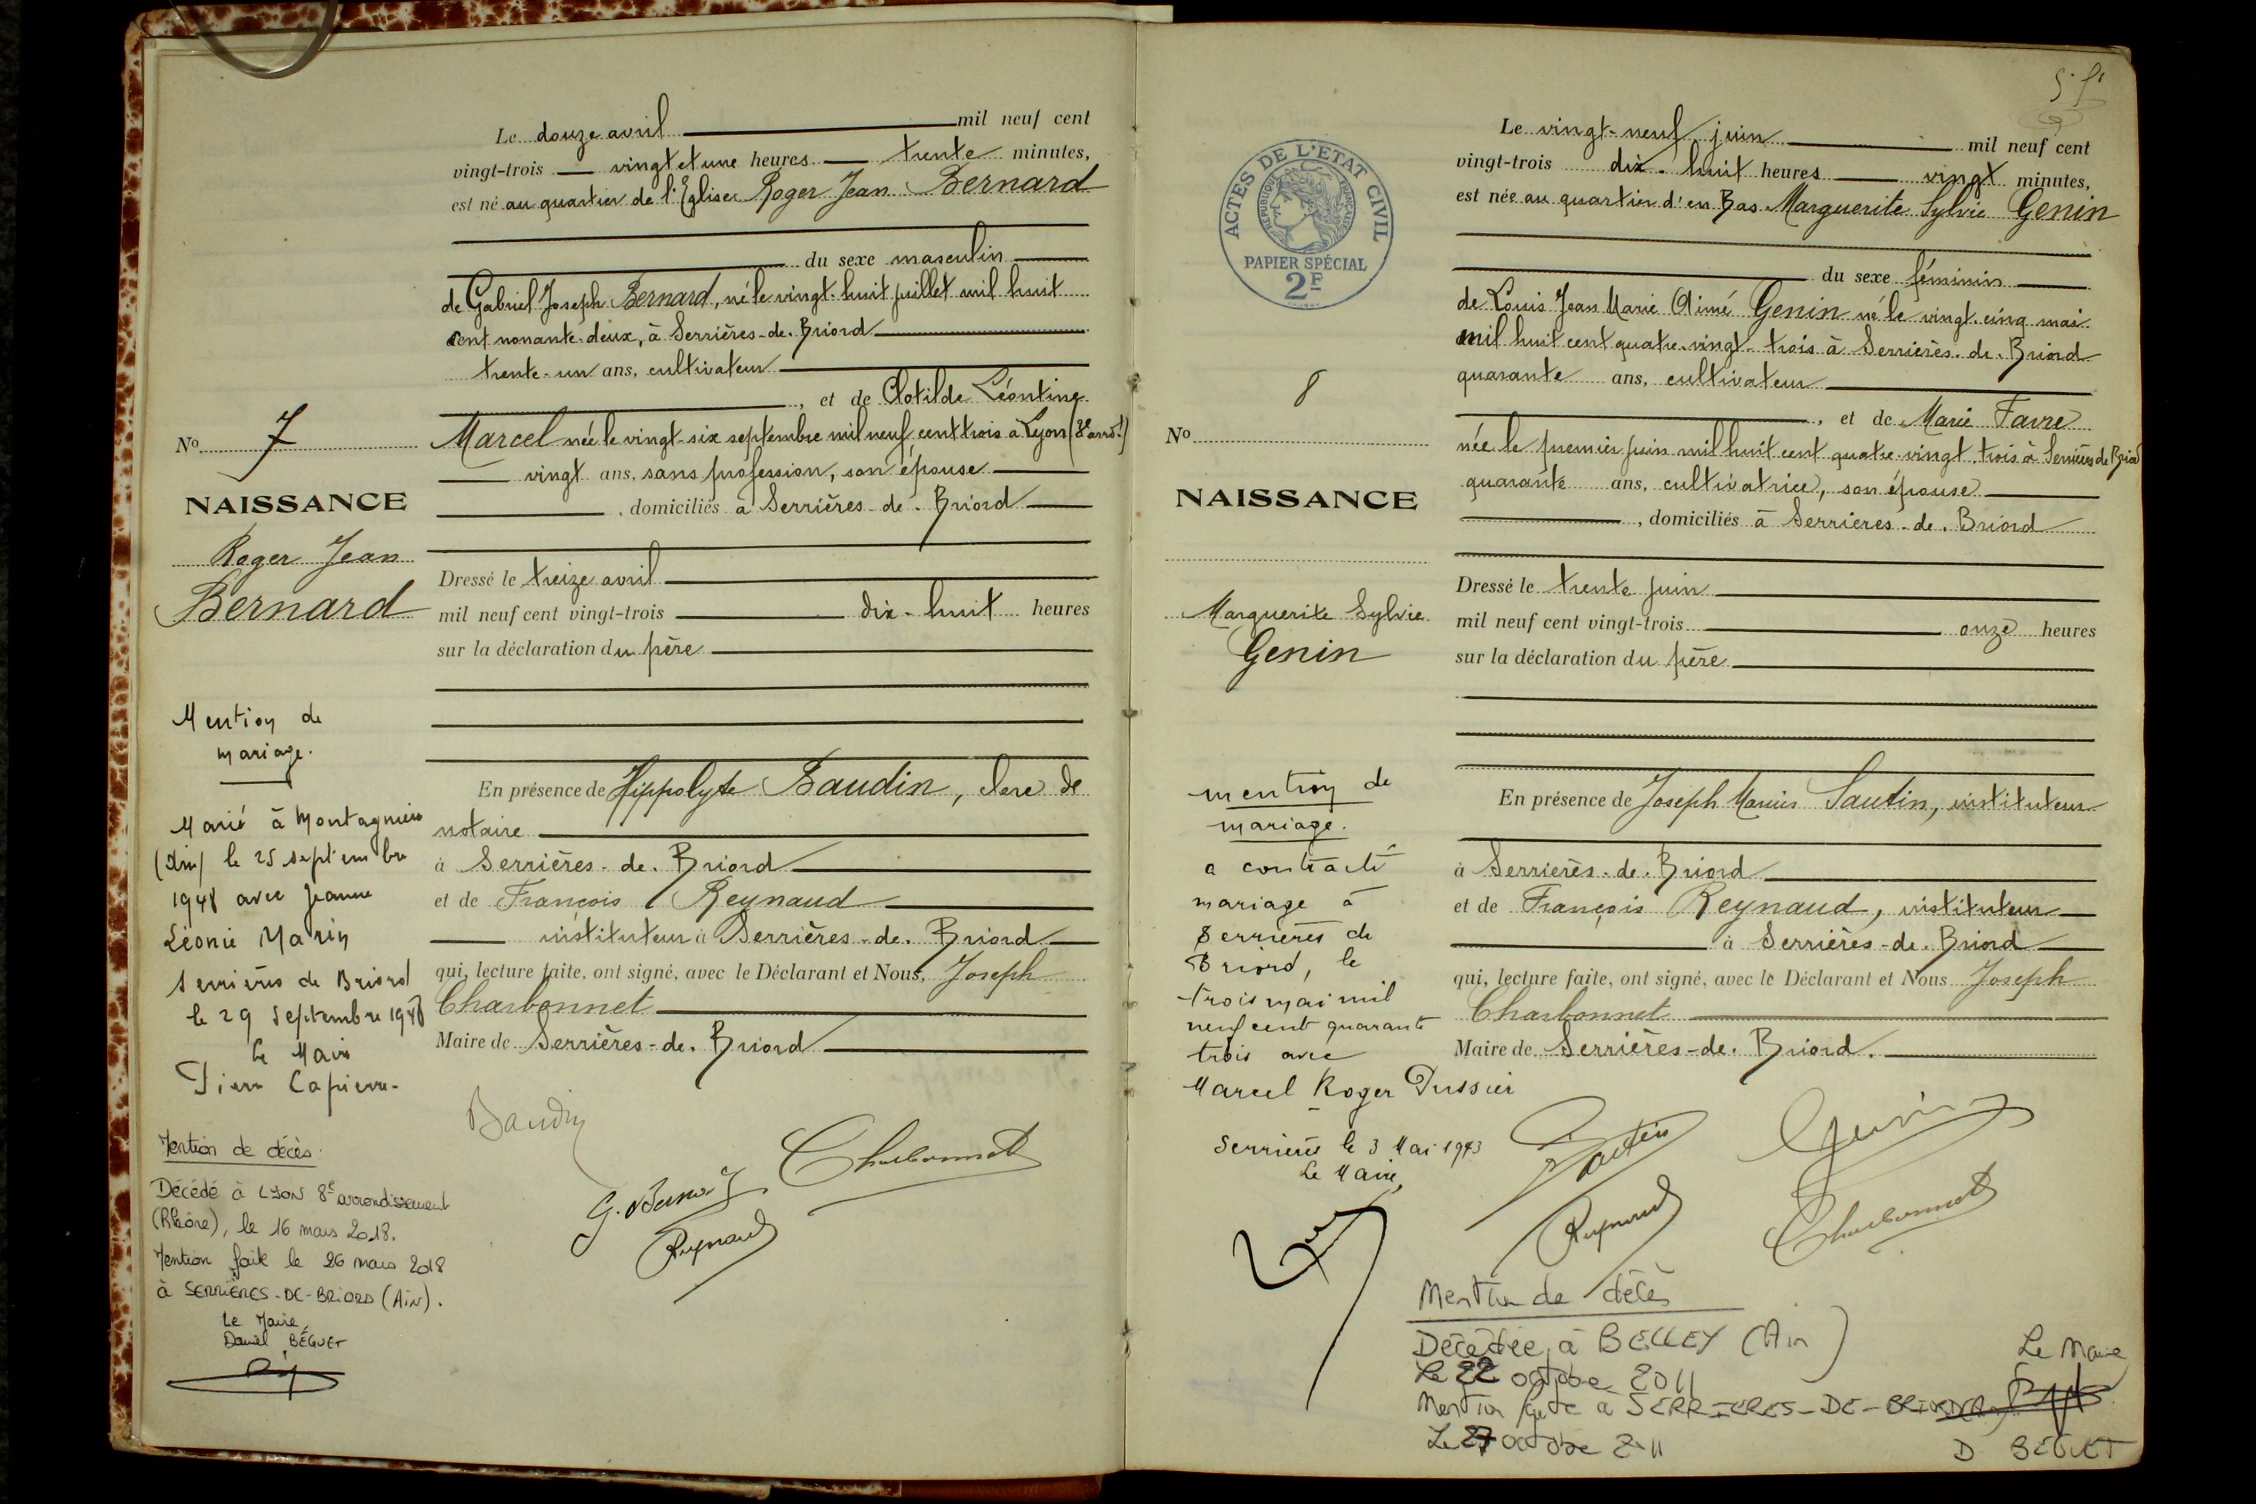 Le douze avril mil neuf cent
vingt-trois vingt et une heures trente minutes,
est né au quartier de l'Eglise Roger Jean Bernard
du sexe masculin
de Gabriel Joseph Bernard, né le vingt-huit juillet mil huit
cent nonante-deux, à Serrières-de-Briord
trente-un ans, cultivateur
, et de Clotilde Léontine
Marcel née le vingt-six septembre mil neuf cent trois à Lyon
vingt ans, sans profession, son épouse
, domiciliés à Serrières-de-Briord
Dressé le treize avril
mil neuf cent vingt-trois dix-huit heures
sur la déclaration du père
En présence de Hippolyte Baudin, clerc de
notaire
à Serrières-de-Briord
et de François Reynaud
instituteur à Serrières-de-Briord
qui, lecture faite, ont signé, avec le Déclarant et Nous, Joseph
Charbonnet
Maire de Serrières-de-Briord
Baudin
Charbonnet
G. Bernard
Reynaud
No 7
NAISSANCE
Roger Jean
Bernard
Mention de
mariage.
Marié à Montagnieu
(Ain) le 25 septembre
1948 avec Jeanne
Léonie Marin
Serrières de Briord
le 29 Septembre 1948
Le Maire
Mention de décès.
Décédé à LYON 8e arrondissement
(Rhône), le 16 mars 2018.
Mention faite le 26 mars 2018
à SERRIÈRES-DE-BRIORD (Ain).
Le Maire,
Daniel BÉGUET
ACTES DE L'ETAT CIVIL
REPUBLIQUE FRANÇAISE
PAPIER SPÉCIAL
2F
Le vingt-neuf juin mil neuf cent
vingt-trois dix-huit heures vingt minutes,
est née au quartier d'en Bas Marguerite Sylvie Genin
du sexe féminin
de Louis Jean Marie Aimé Genin né le vingt-cinq mai
mil huit cent quatre-vingt-trois à Serrières-de-Briord
quarante ans, cultivateur
, et de Marie Favre
née le premier juin mil huit cent quatre-vingt-trois à Serrières de Briord
quarante ans, cultivatrice, son épouse
, domiciliés à Serrières-de-Briord
Dressé le trente juin
mil neuf cent vingt-trois onze heures
sur la déclaration du père
En présence de Joseph Marius instituteur
à Serrières-de-Briord
et de François Reynaud, instituteur
à Serrières-de-Briord
qui, lecture faite, ont signé, avec le Déclarant et Nous Joseph
Charbonnet
Maire de Serrières-de-Briord.
Genin
Reynaud
Charbonnet
No 8
NAISSANCE
Marguerite Sylvie
Genin
mention de
mariage.
a contracté
mariage à
Serrières de
Briord, le
trois mai mil
neuf cent quarante
trois avec
Marcel Roger
Serrières le 3 Mai 1943
Le Maire,
Mention de décès
Décédée à BELLEY (Ain)
Le 22 octobre 2011
Mention faite à SERRIERES-DE-BRIORD
Le 27 octobre 2011
Le Maire
D BÉGUET